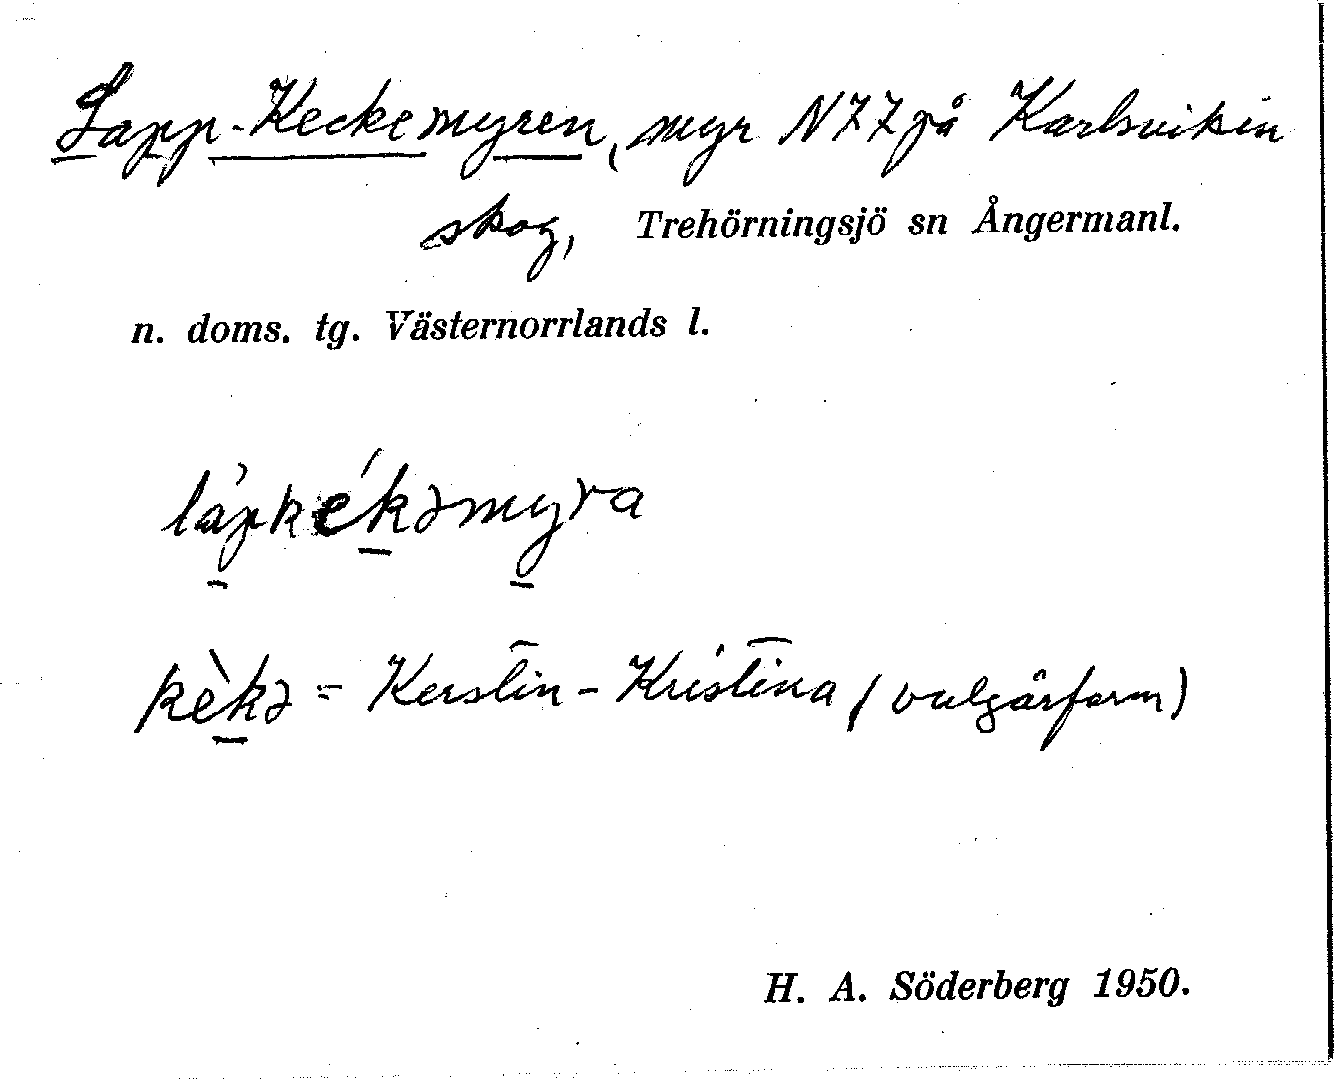 Lapp-Keckemyren, myr N77 på Karlsviken
skog, Trehörningsjö sn Ångermanl.
n. doms. tg. Västernorrlands l.
làpkékəmyra
kèkə = Kerstin - Kristina (vulgärform)
H. A. Söderberg 1950.